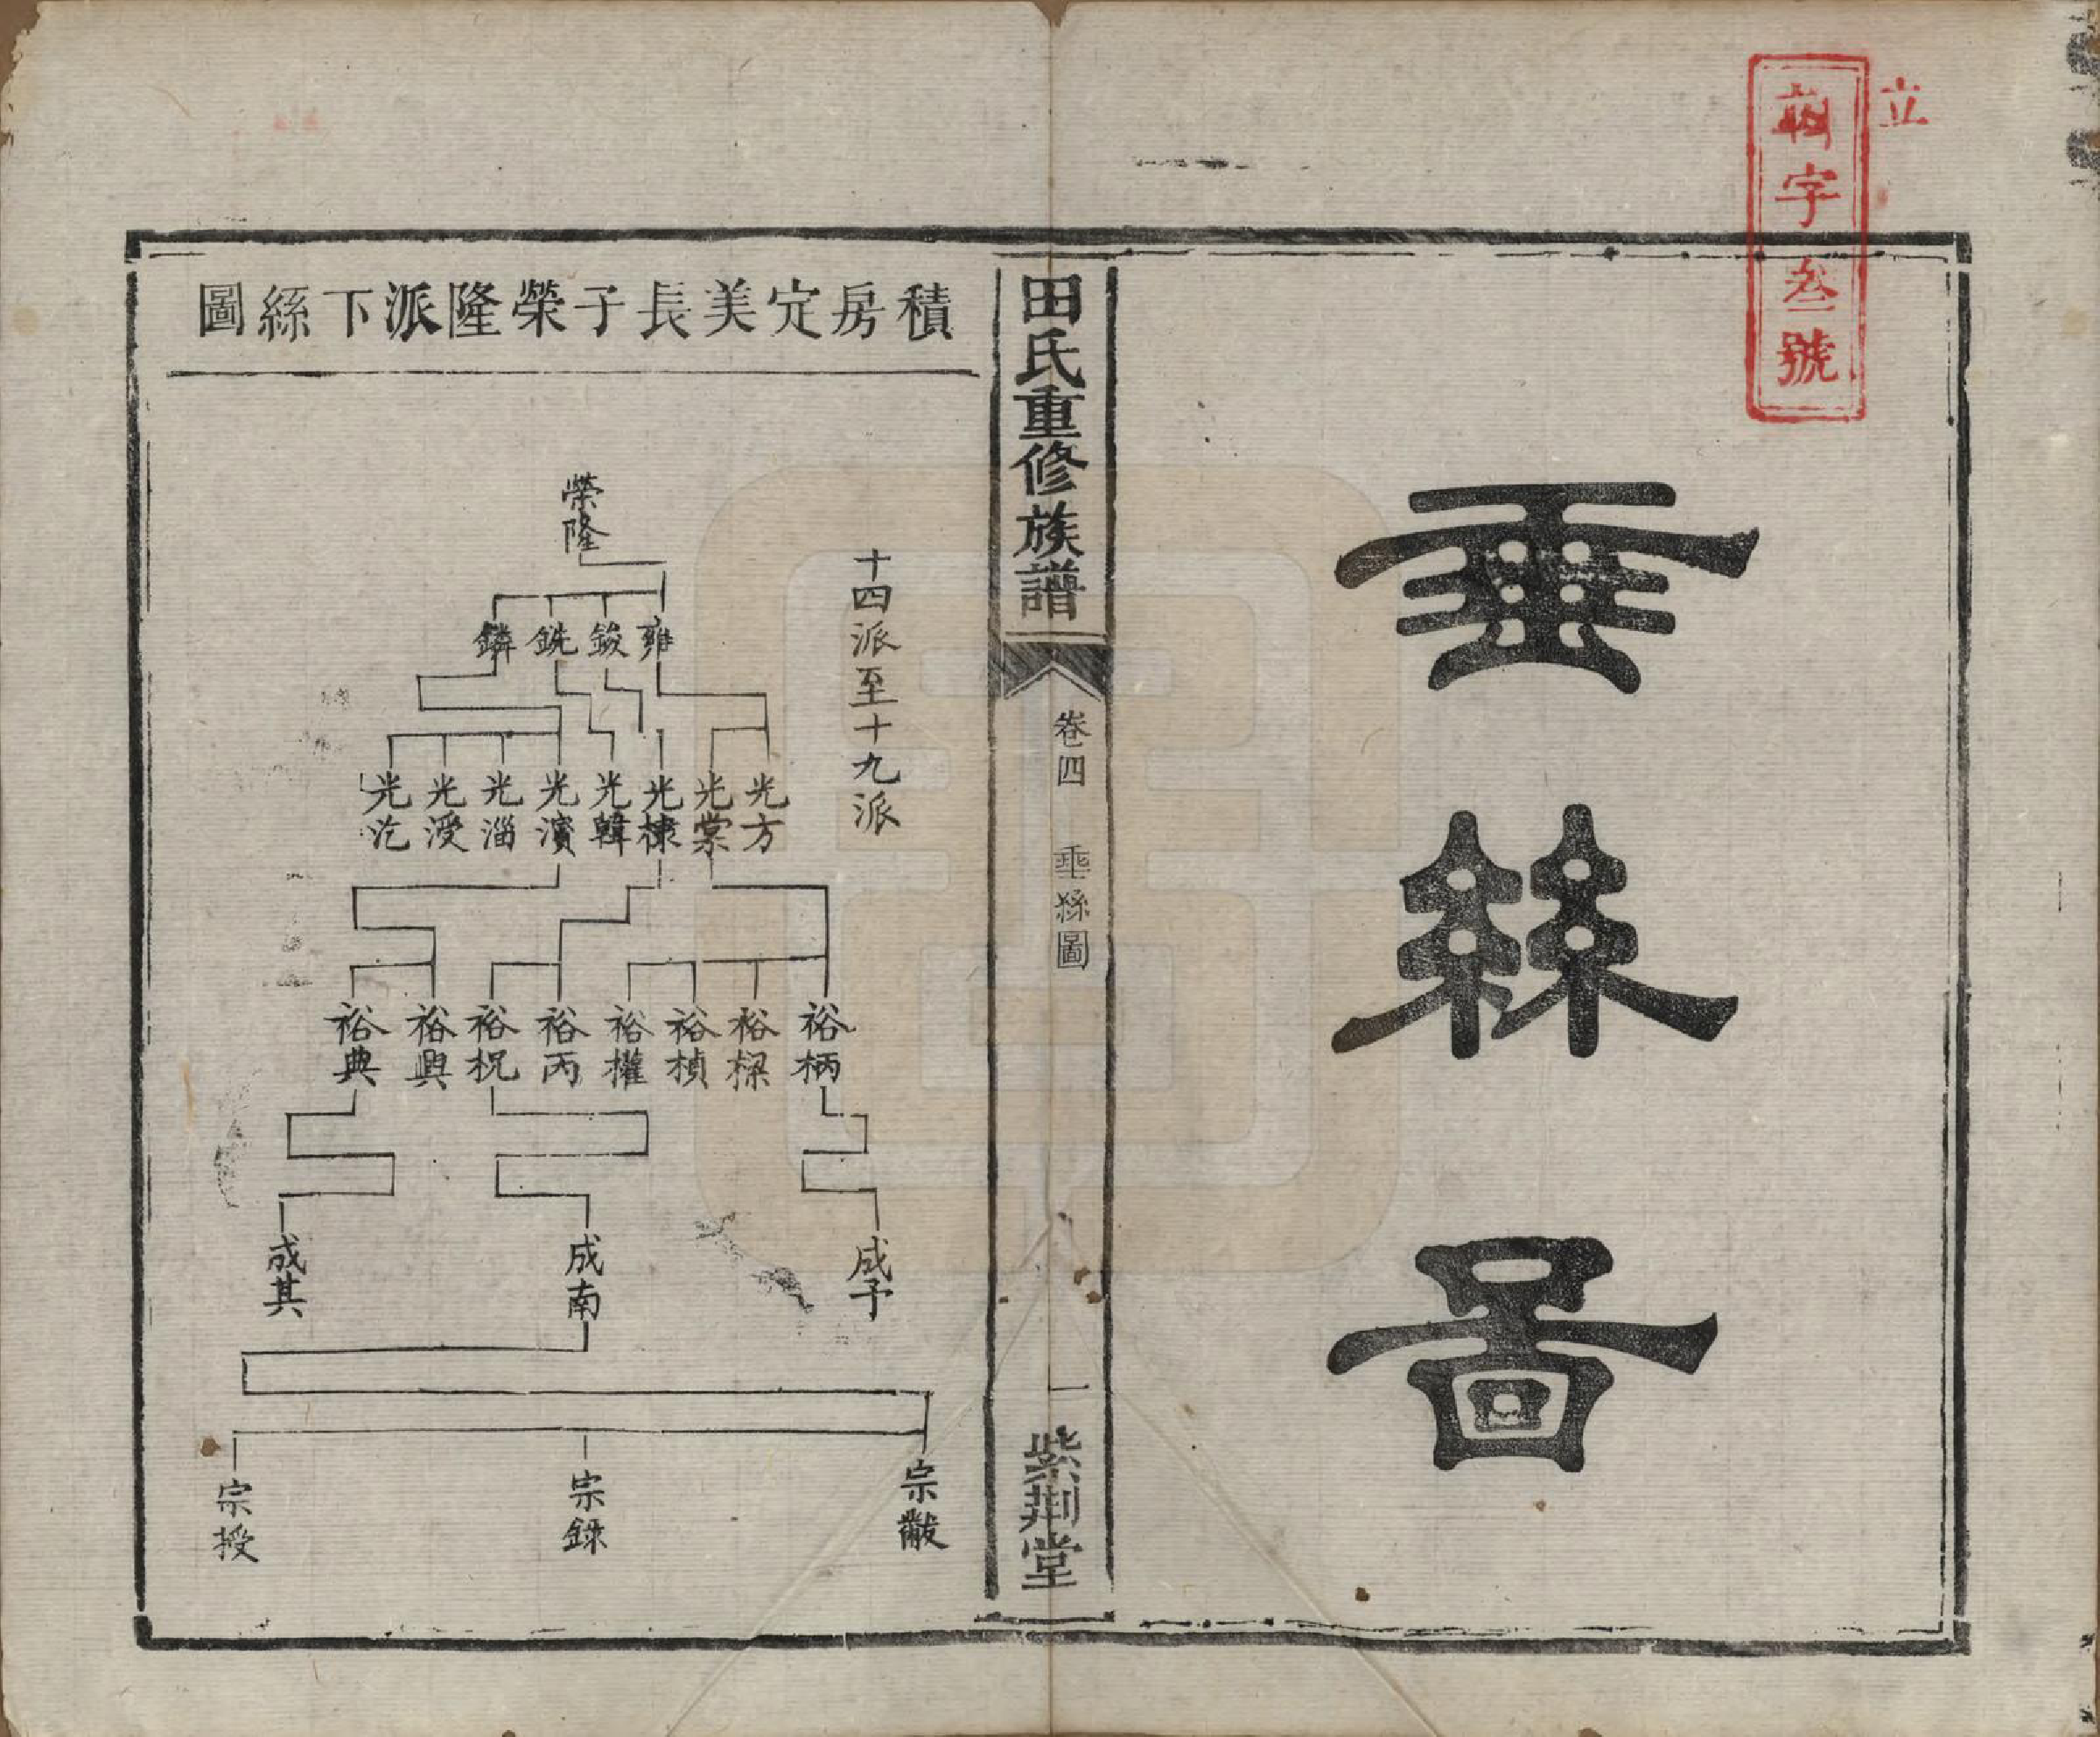 立
字叁號
垂絲圖
田氏重修族譜
卷四 垂絲圖
一
紫荆堂
積房定美長子榮隆派下絲圖
十四派至十九派
榮隆
雍 鋑 銑 鏻
光方 光棠 光棣 光韓 光濱 光淄 光澄 光汔
裕柄 裕樑 裕楨 裕權 裕丙 裕柷 裕興 裕典
成予 成南 成其
宗黻 宗錄 宗授